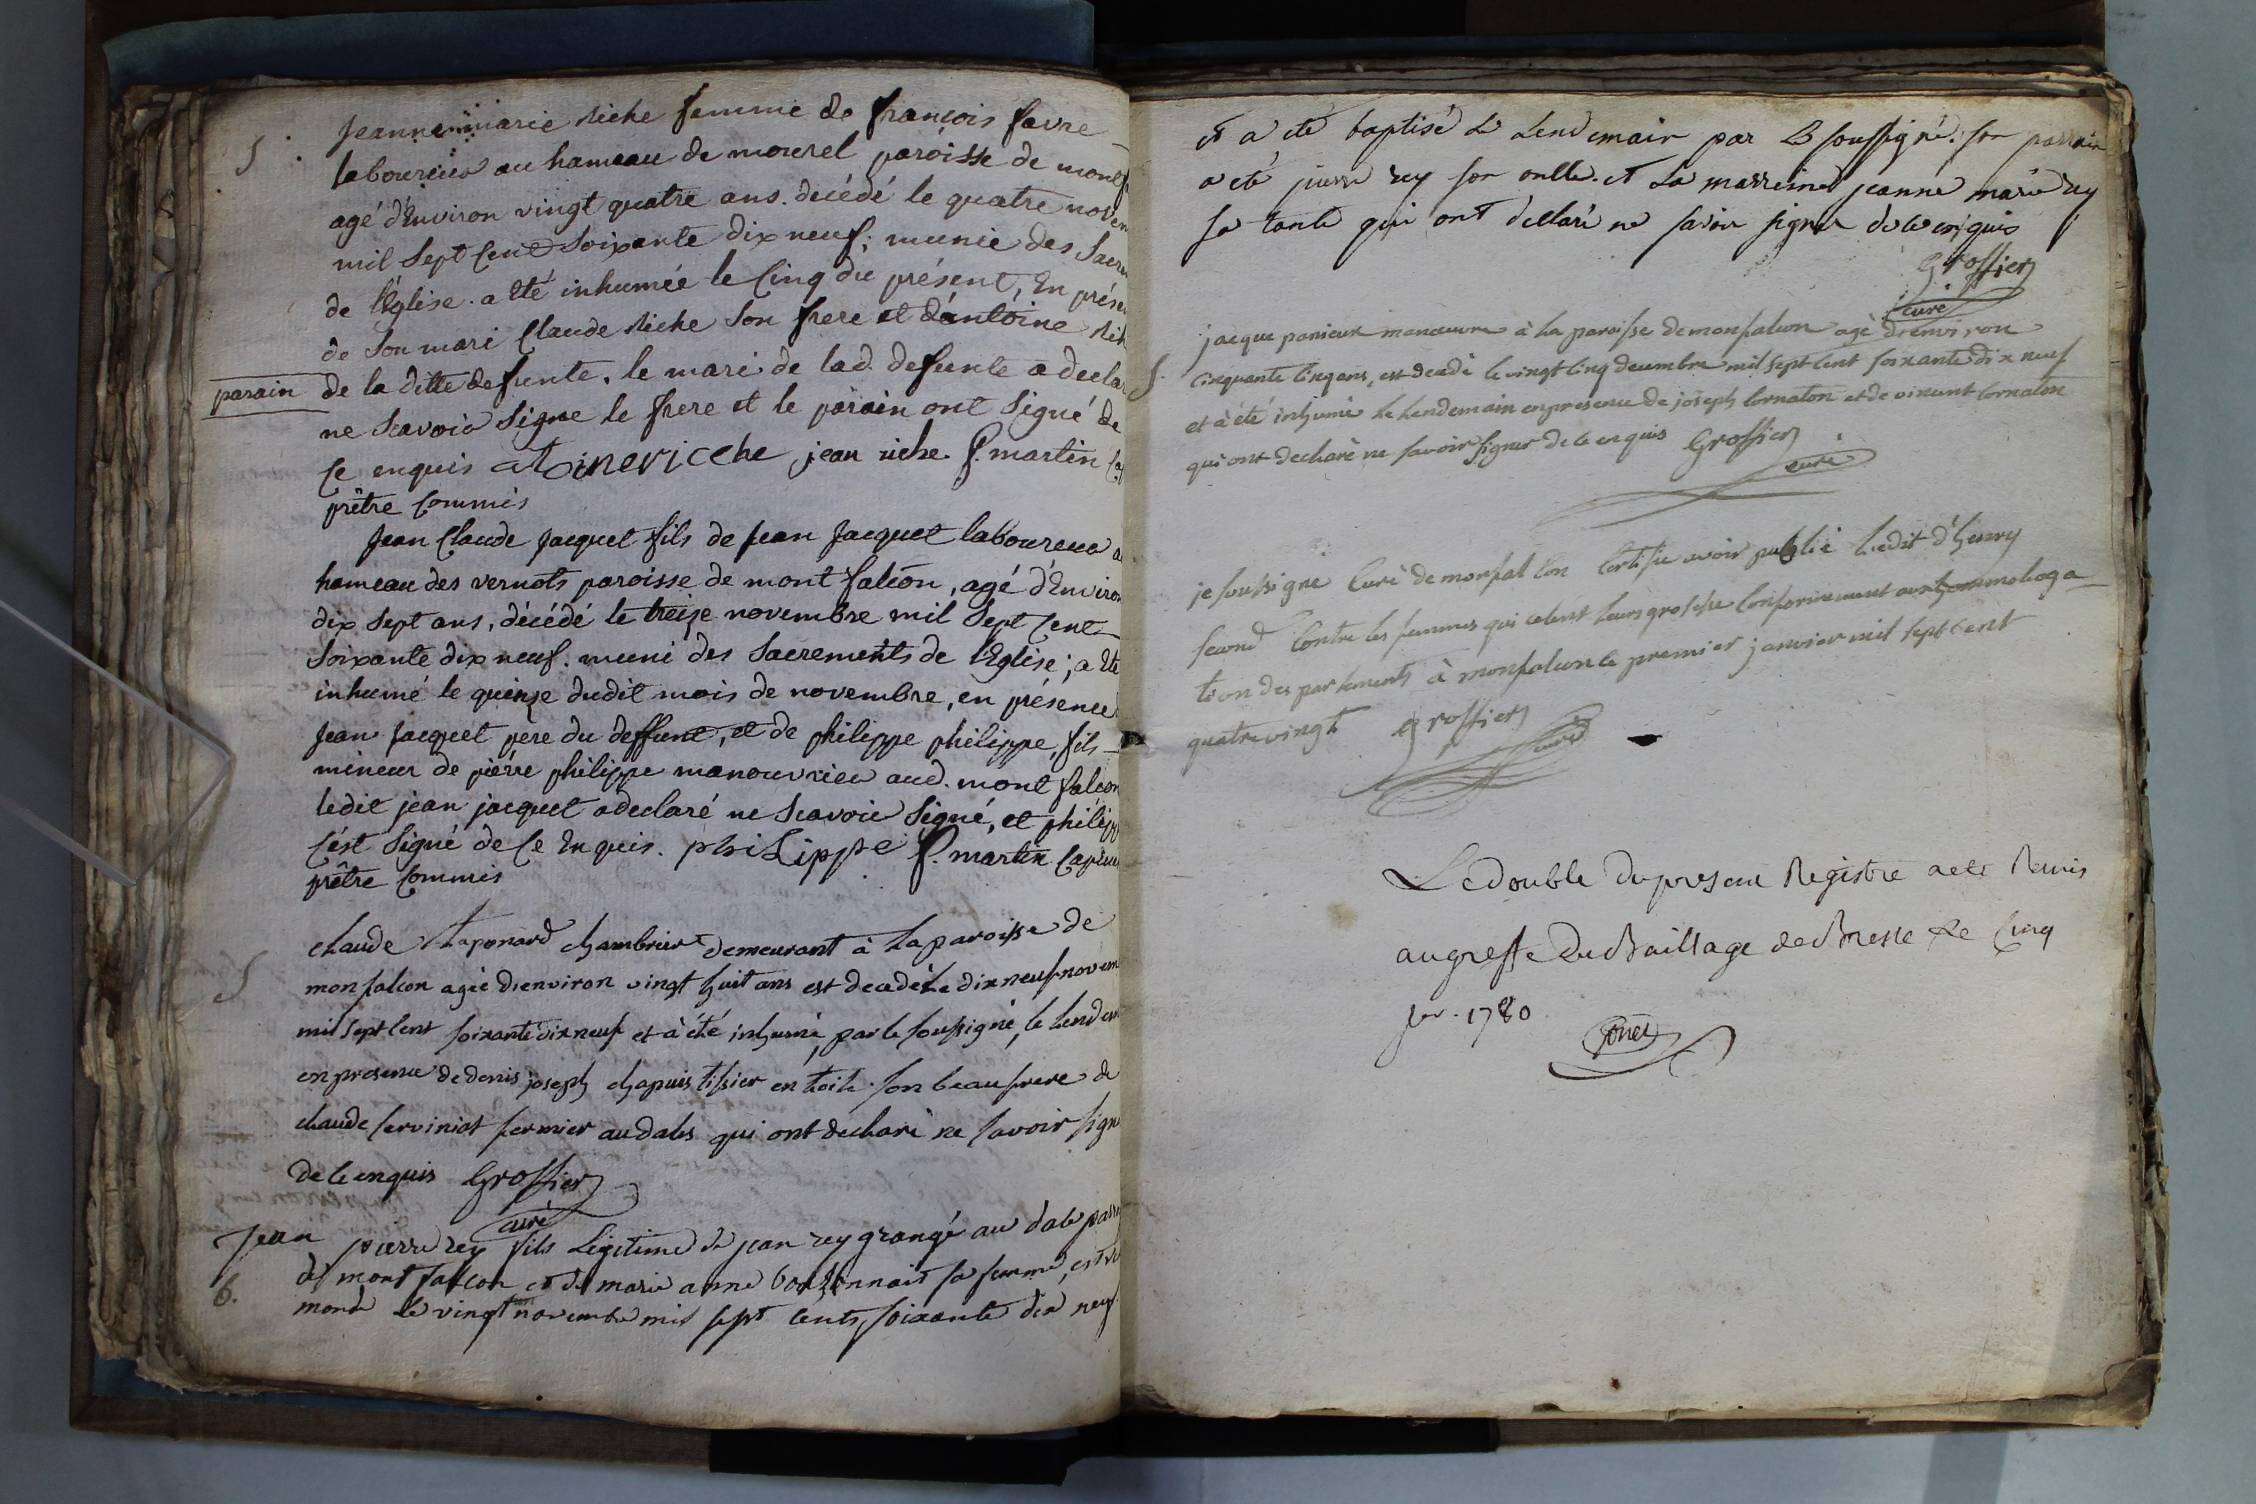 S. Jeanne marie riche femme de françois favre
laboureur au hameau de mourel paroisse de mont
agé d'Environ vingt quatre ans. decédé le quatre novem
mil Sept Cent Soixante dix neuf; munie des Sacre
de l'Eglise. a Eté inhumée le Cinq du présent, En prése
de Son mari Claude riche Son frere et d'antoine rich
parain de la ditte defunte. le mari de lad. defunte a declar
ne Scavoir Signe le frere et le parain ont Signé de
Ce enquis jean riche. f. martin
prêtre Commis
Jean Claude Jacquet fils de Jean Jacquet laboureur a
hameau des vernots paroisse de mont falcon, agé d'Environ
dix Sept ans, décédé le treize novembre mil Sept Cent
Soixante dix neuf. muni des Sacrements de l'Eglise; a Eté
inhumé le quinze dudit mois de novembre, en présence
Jean Jacquet pere du deffunt, et de philippe philippe, fils
mineur de pierre philippe manouvrier aud. mont falcon
ledit jean jacquet a declaré ne Scavoir Signé, et philipp
C'ést Signé de Ce Enquis. phiLippe f. martin Capuc
prêtre Commis
S claude chambrier demeurant à la paroisse de
monfalcon agée d'environ vingt huit ans est decedé le dix neuf novem
mil sept cent soixante dix neuf et à été inhumé, par le soussigné, le lendem
en presence de denis joseph chapuis tissier en toile son beaufrere de
claude serviniat fermier au dales qui ont declaré ne savoir sign
de ce enquis Grossier
curé
Jean pierre rey fils Légitime de jean rey grangé au dale paroi
B. de mont falcon et de marie anne sa femme, est
monde le vingt un novembre mil sept cents soixante dix neuf
et a été baptisé le Lendemain par le soussigné. son parrain
a été pierre rey son oncle. et La marreine jeanne marie rey
sa tante qui ont declaré ne savoir signer de ce enquis
Grossier
curé
S. jacque panieux manœuvre à la paroisse de monfalcon agé d'environ
cinquante cinq ans, est decedé le vingt cinq decembre mil sept cent soixante dix neuf
et à été inhumé le lendemain en presence de joseph cornaton et de vincent cornaton
qui ont declaré ne savoir signer de ce enquis Grossier
curé
je soussigné Curé de monfalcon Certifie avoir publié l'edit d'henry
second Contre les femmes qui celent leurs grossesse Conformement aux hommologa-
tion des parlements à monfalcon le premier janvier mil sept cent
quatre vingt Grossier
curé
Le double du present Registre a ete Remis
au greffe Du Bailliage de Bresse Le Cinq
Jer. 1780